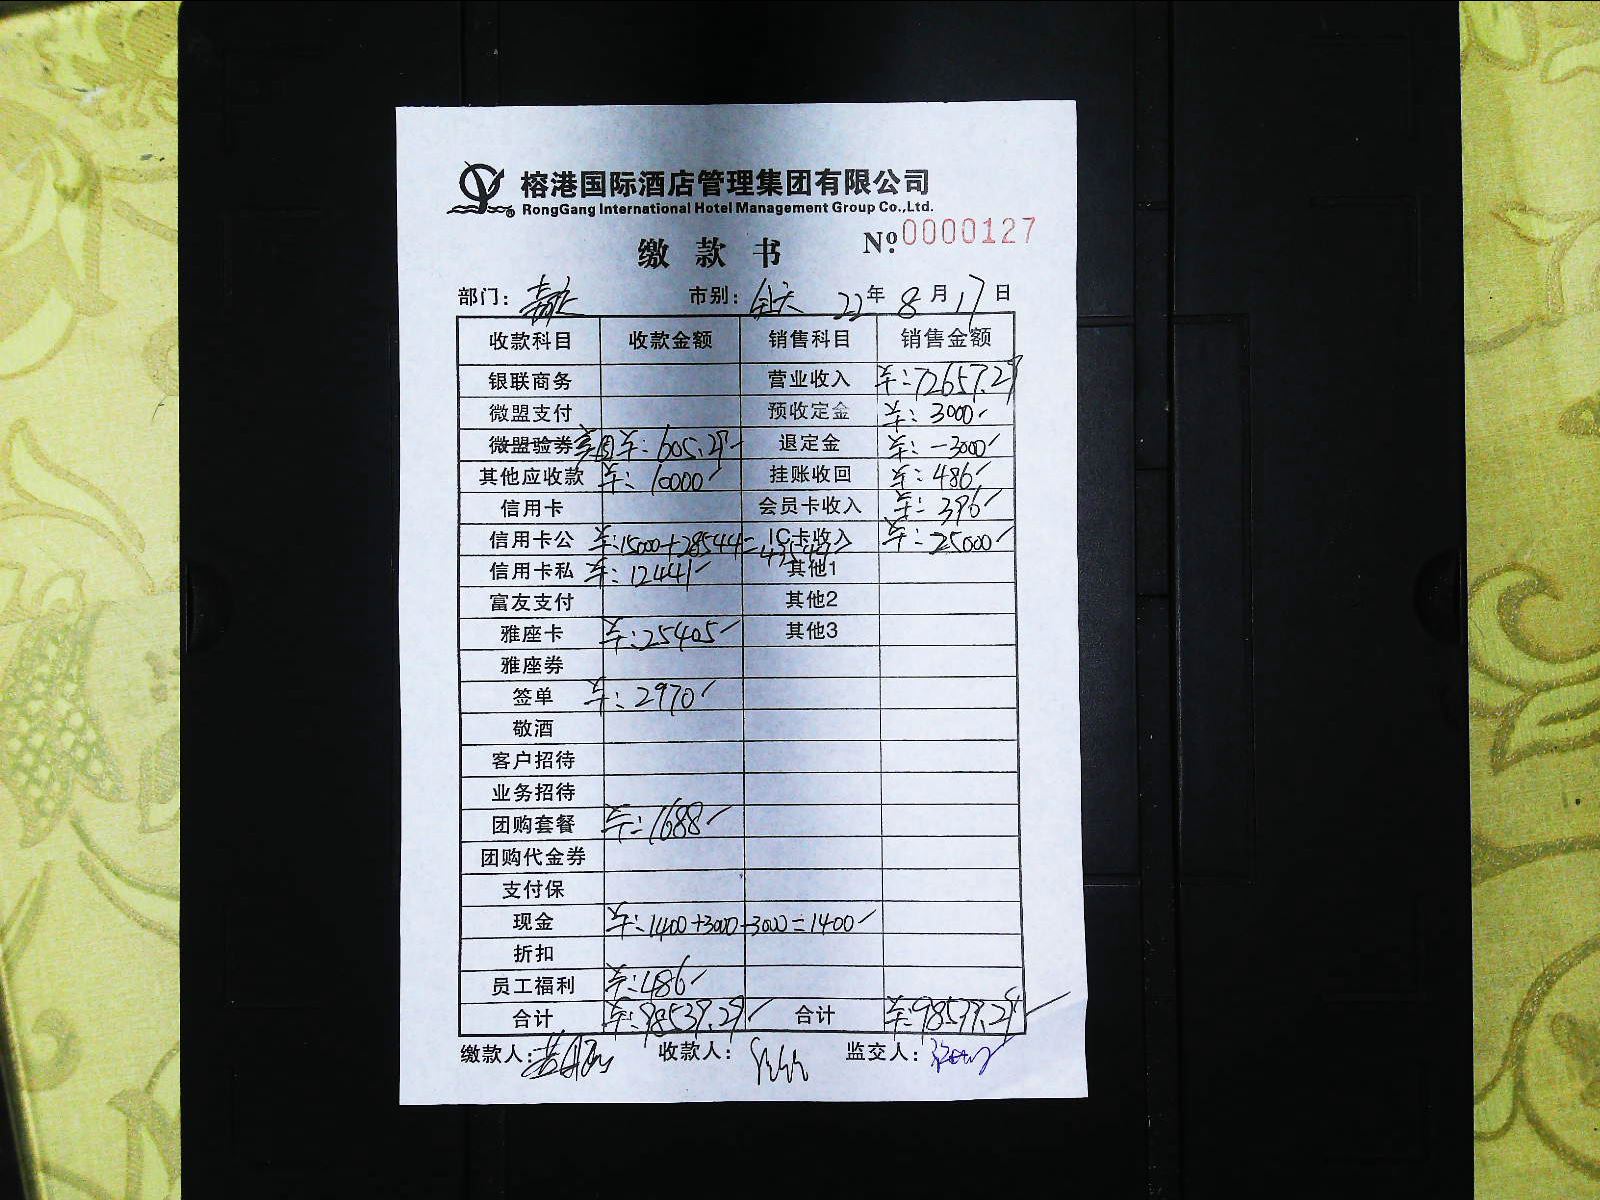 榕港国际酒店管理集团有限公司
RongGang International Hotel Management Group Co.,Ltd.
缴款书 Nº:0000127
部门: 市别:全天 22年8月17日
收款科目 收款金额 销售科目 销售金额
银联商务 营业收入 ¥:72657.29
微盟支付 预收定金 ¥:3000
微盟验券 美团 ¥:605.29 退定金 ¥:-3000
其他应收款 ¥:10000 挂账收回 ¥:486
信用卡 会员卡收入 ¥:396
信用卡公 ¥:15000+28544=43544 IC卡收入 ¥:25000
信用卡私 ¥:12441 其他1
富友支付 其他2
雅座卡 ¥:25405 其他3
雅座券
签单 ¥:2970
敬酒
客户招待
业务招待
团购套餐 ¥:1688
团购代金券
支付保
现金 ¥:1400+3000-3000=1400
折扣
员工福利 ¥:486
合计 ¥:98539.29 合计 ¥:98539.29
缴款人: 收款人: 监交人: